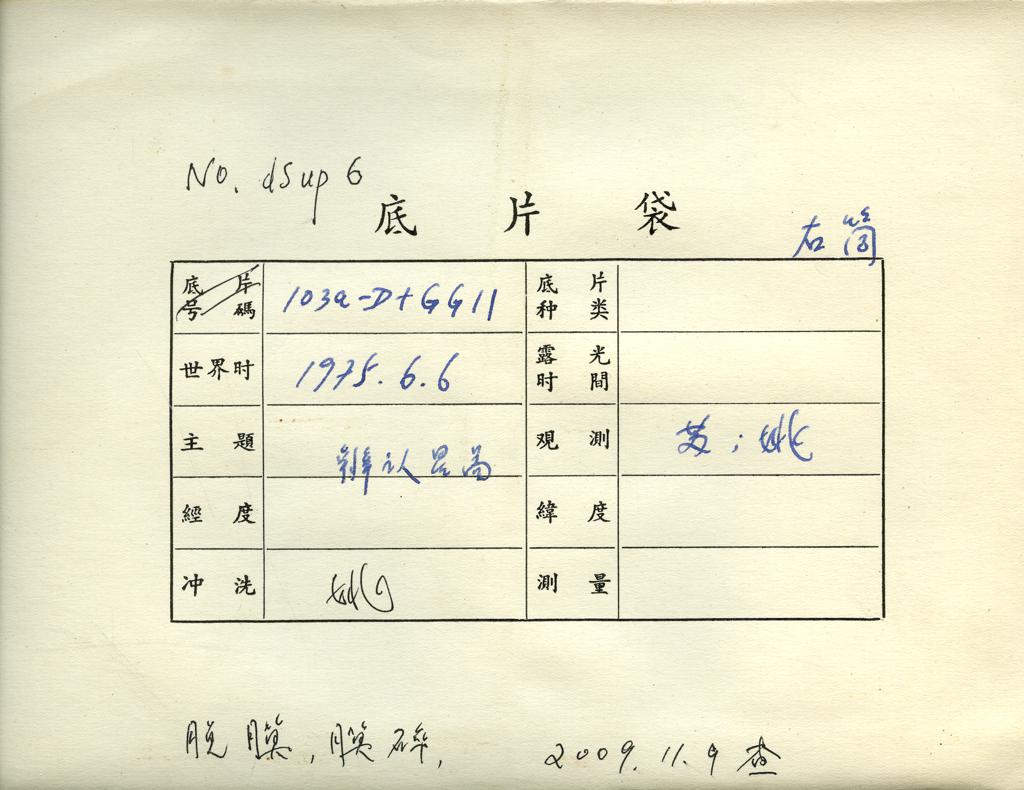 No. dSup 6
底 片 袋
右筒
底片号碼 103a-D+GG11 底片种类
世界时 1975.6.6 露光时間
主題 辨认星高 观測 黄；姚
經度 緯度
冲洗 姚 測量
脱膜，膜碎， 2009.11.9 查